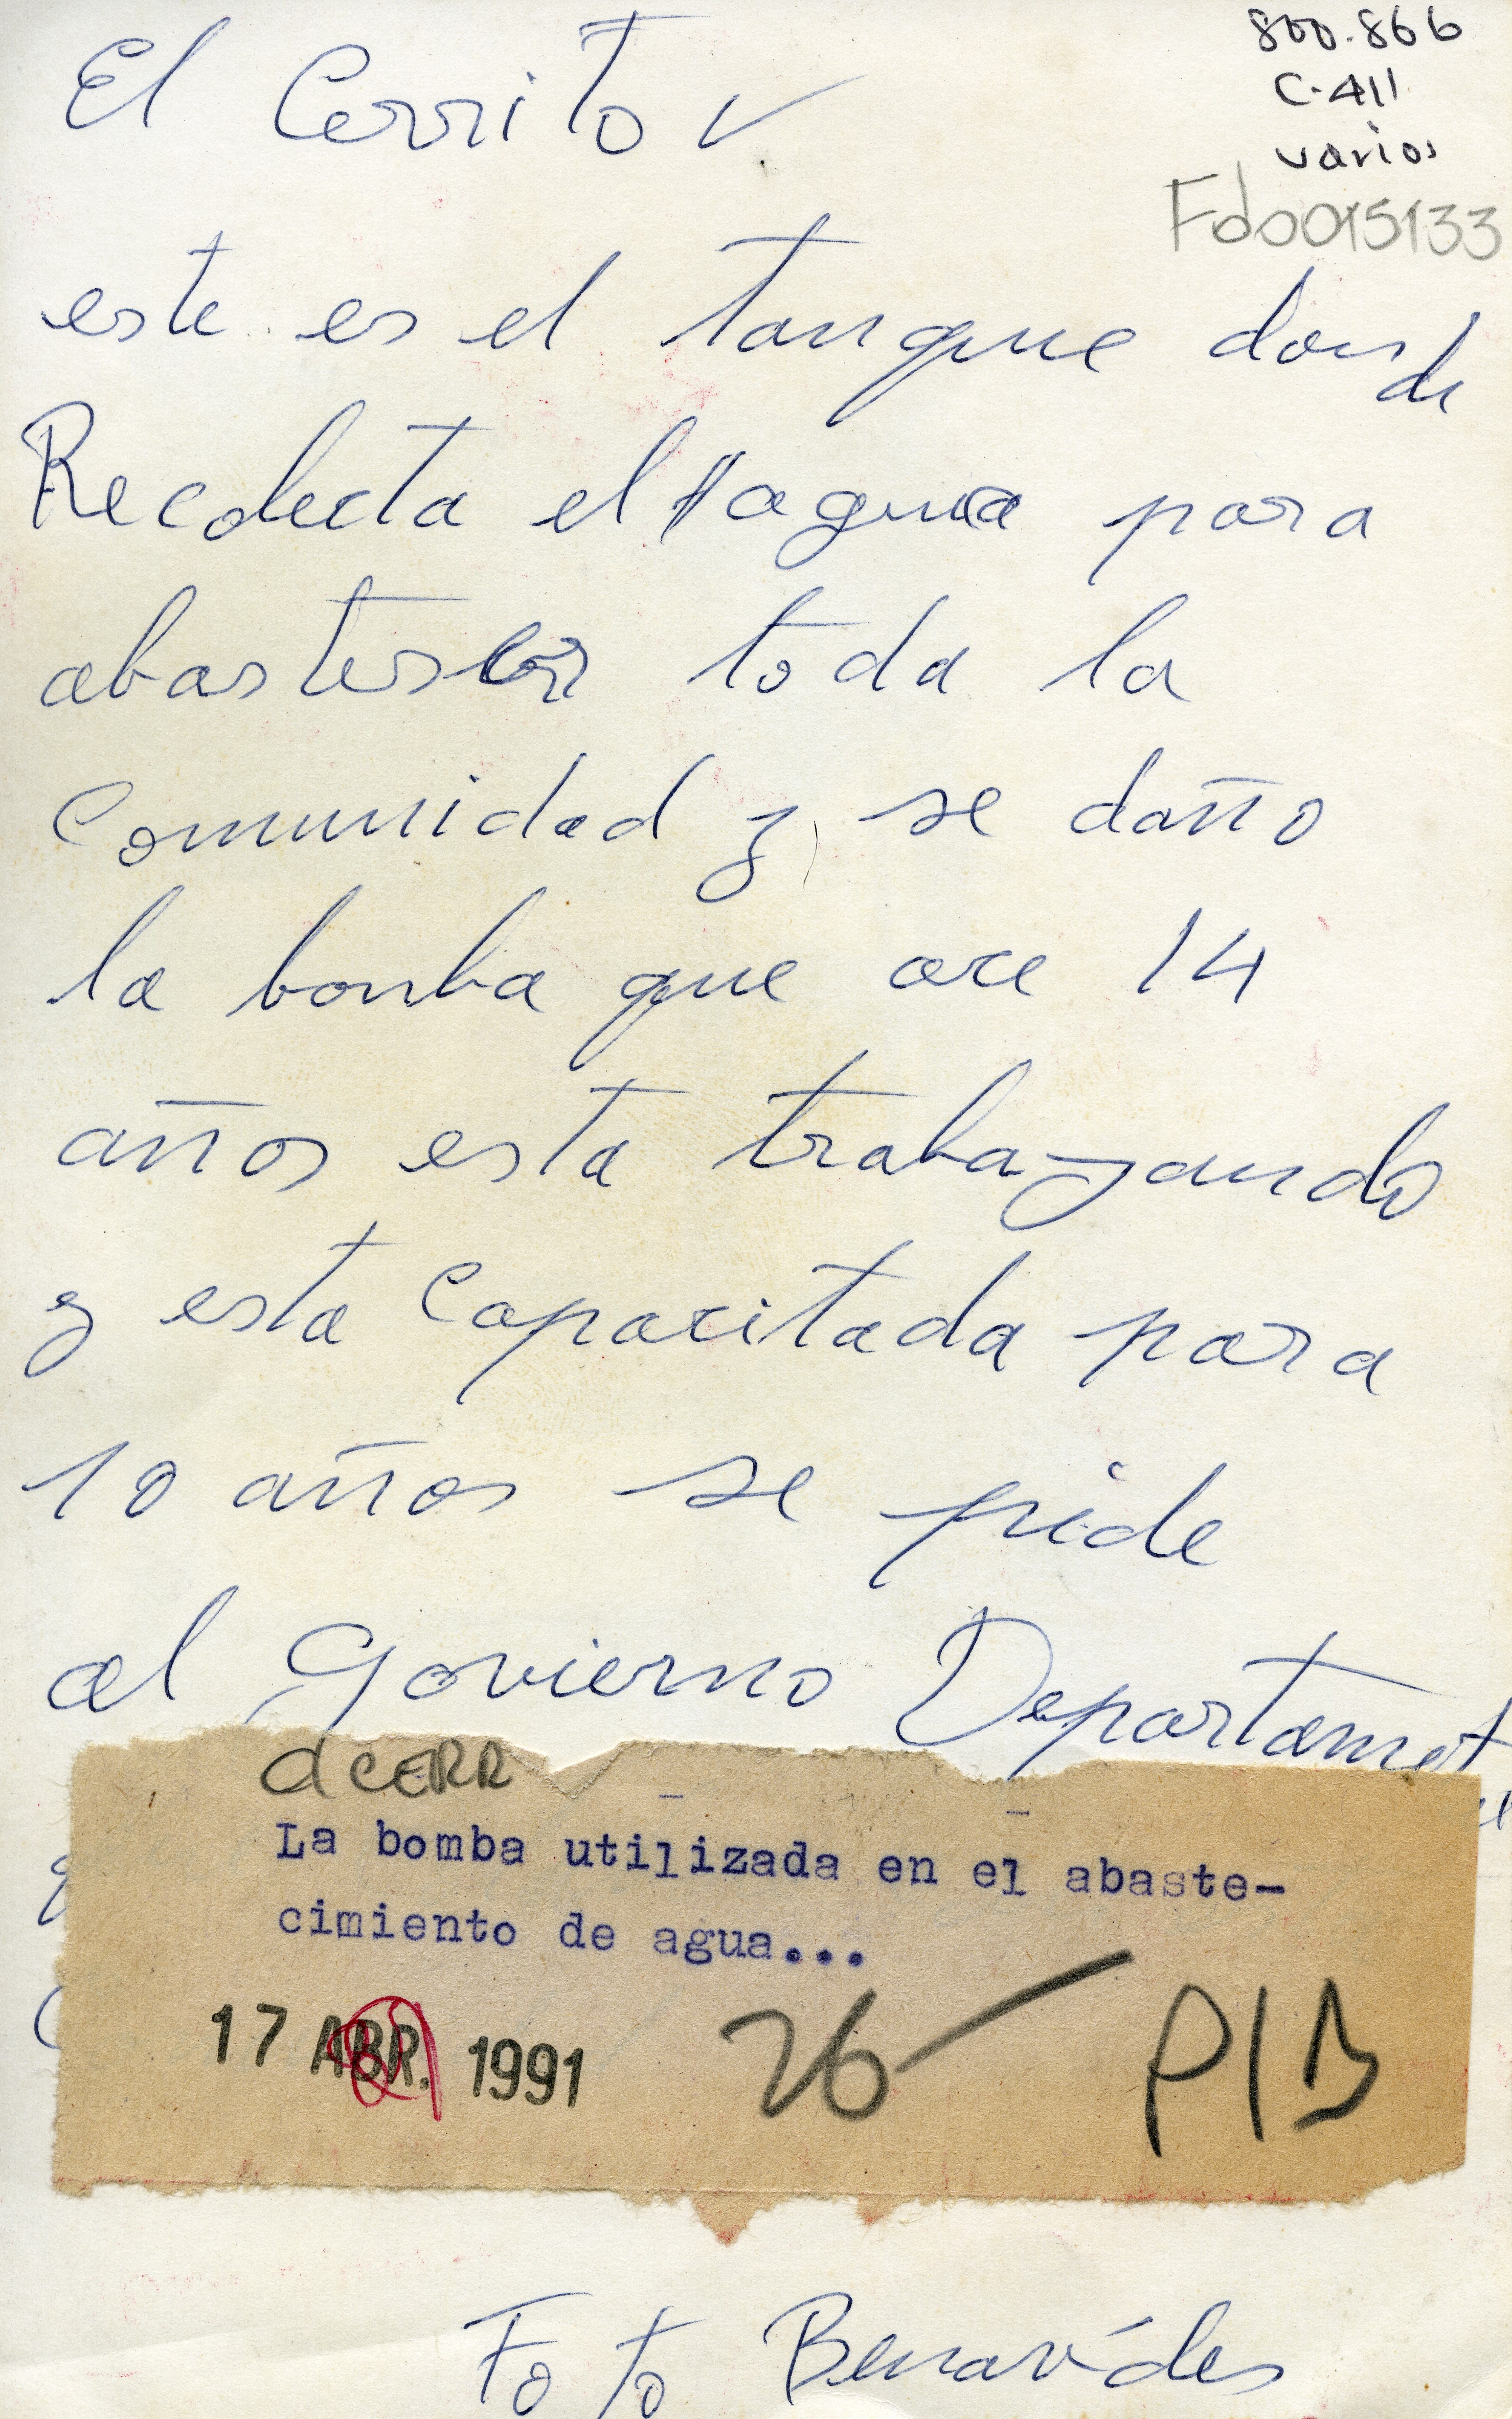 El Cerrito V.
800.866
C-411
varios
Fdo015133
este es el tanque donde
Recolecta el agua para
abasteser toda la
Comunidad y se daño
la bonba que ace 14
años esta trabajando
y esta Capacitada para
10 años se pide
al Govierno Departament
dCERR
La bomba utilizada en el abaste-
cimiento de agua...
17 ABR. 1991 26 PIB
Foto Benavides